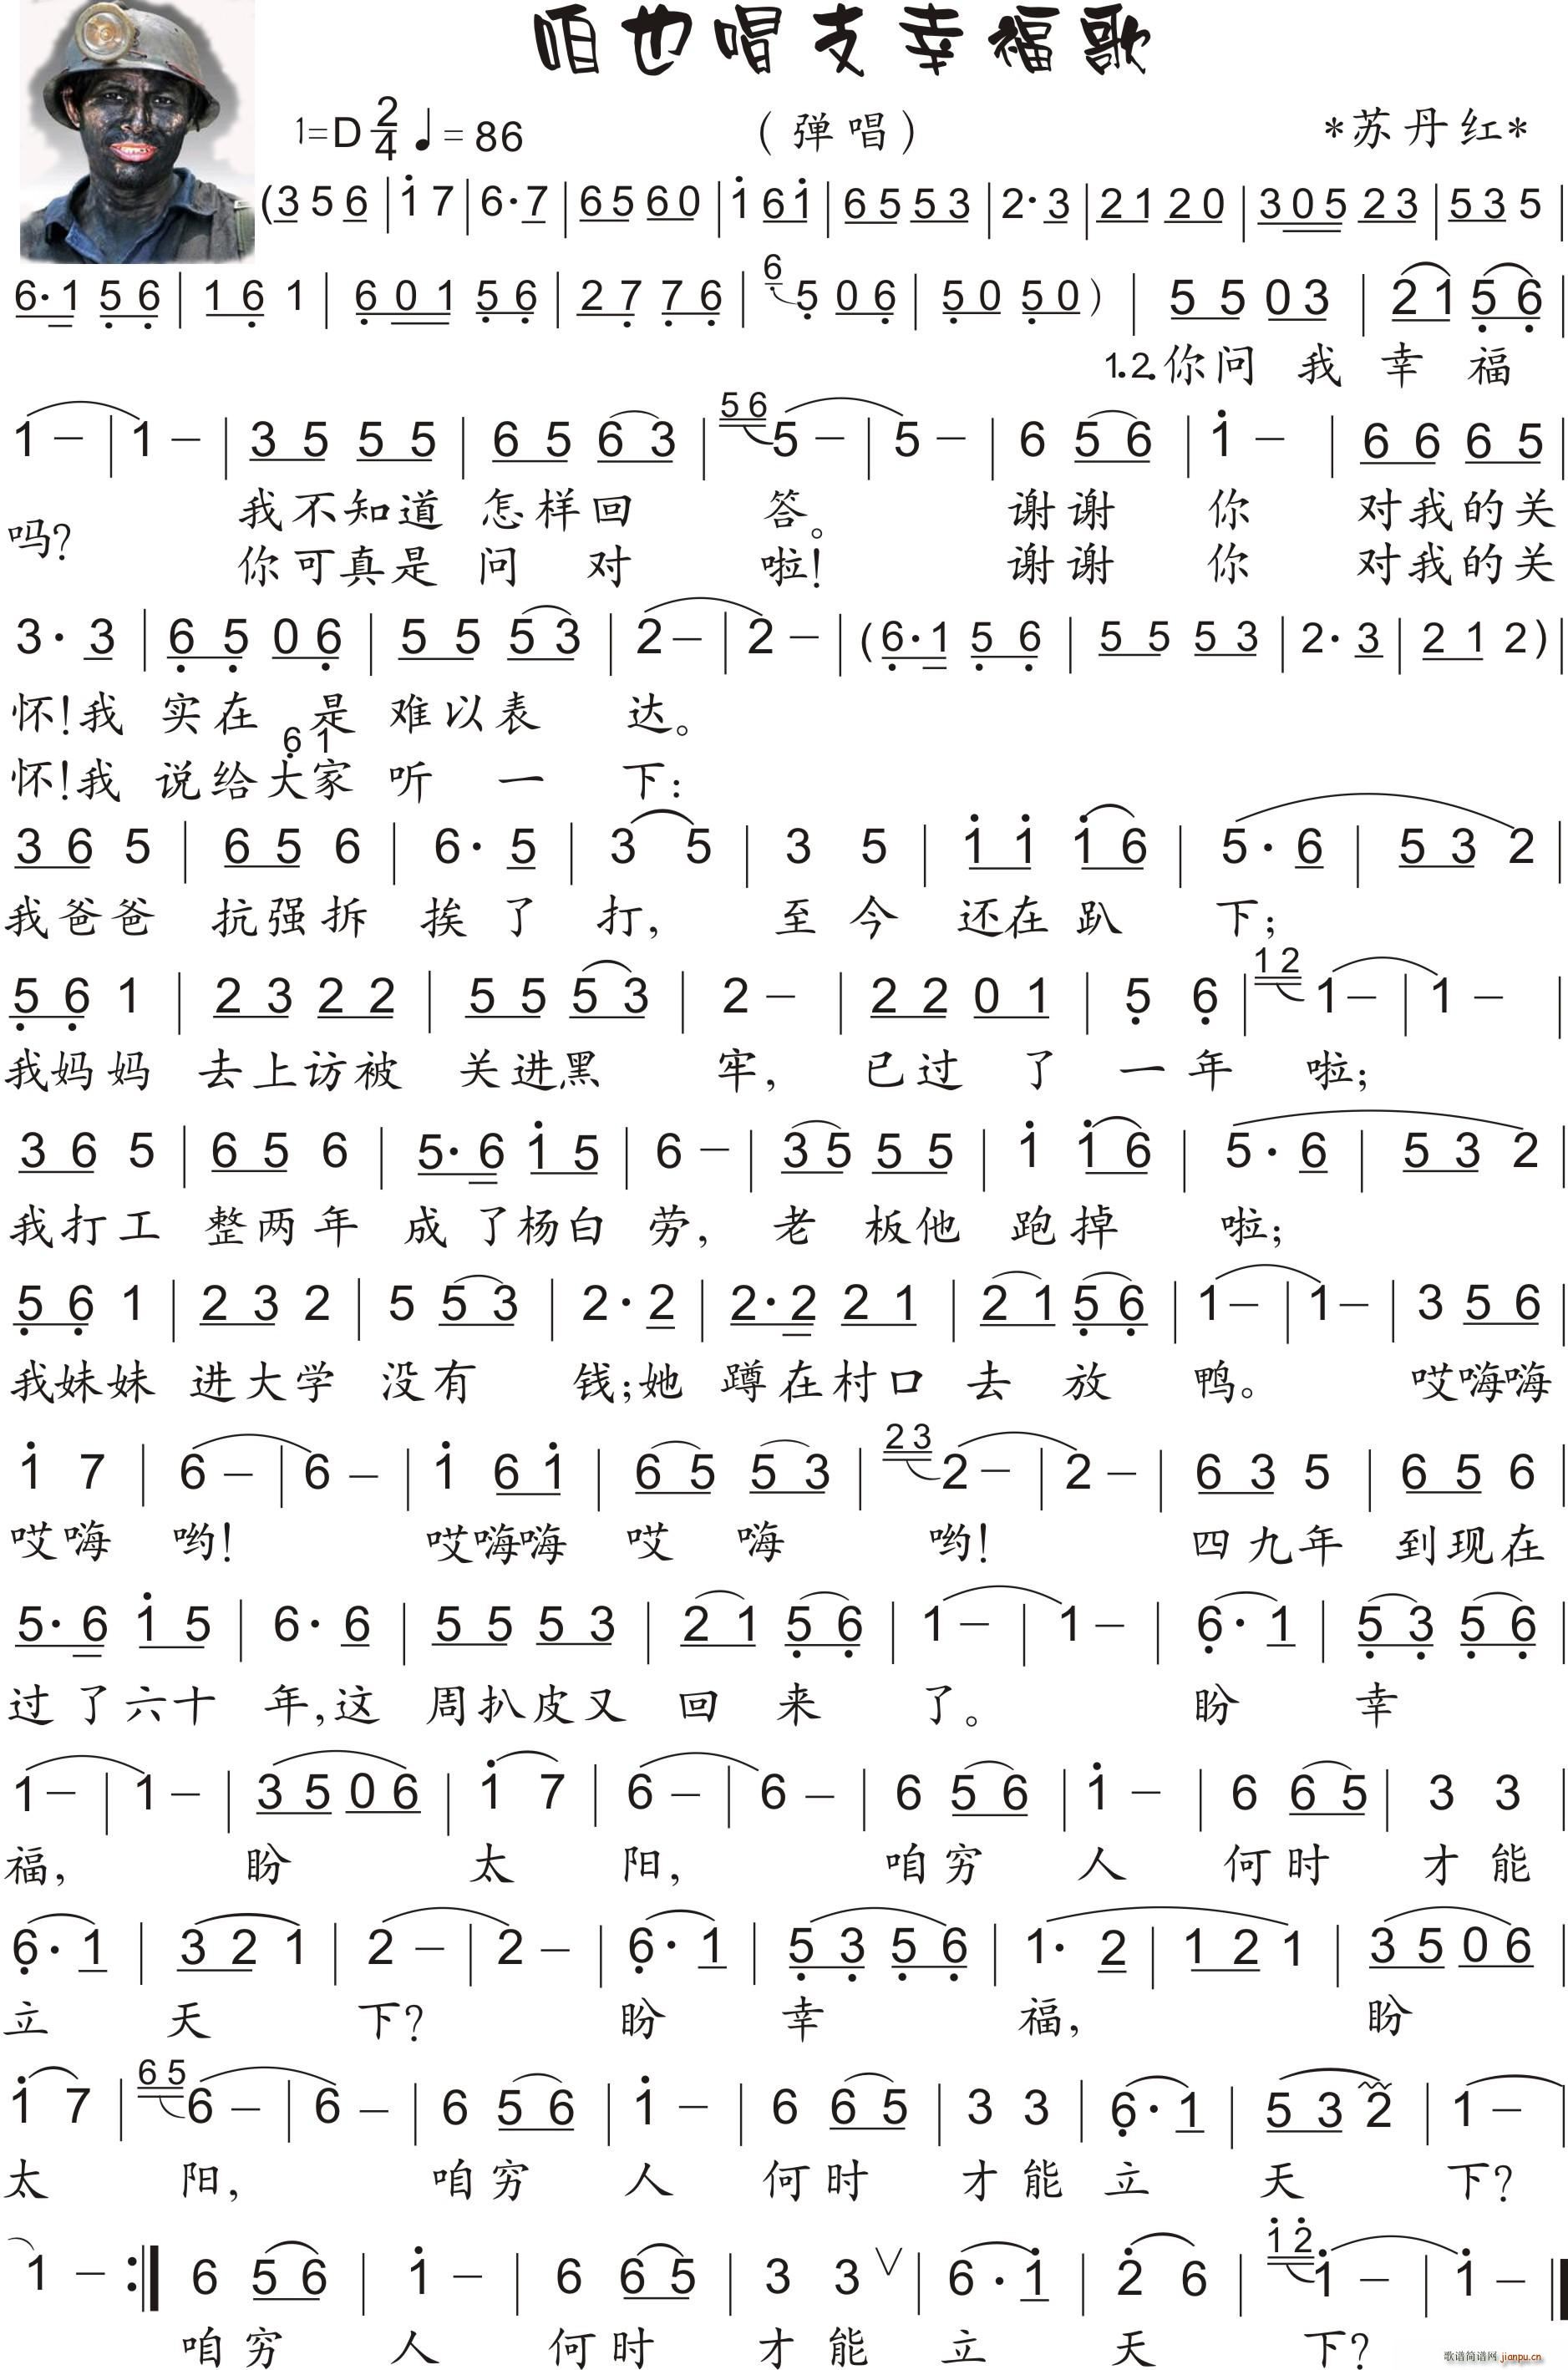 咱也唱支幸福歌
1=D 2/4 ♩=86 （弹唱） *苏丹红*
(3 5 6 | i 7 | 6· 7 | 6 5 6 0 | i 6 i | 6 5 5 3 | 2· 3 | 2 1 2 0 | 3 0 5 2 3 | 5 3 5 |
6· 1 5 6 | 1 6 1 | 6 0 1 5 6 | 2 7 7 6 | 6 5 0 6 | 5 0 5 0 ) | 5 5 0 3 | 2 1 5 6 |
1.2.你问 我 幸 福
1 – | 1 – | 3 5 5 5 | 6 5 6 3 | 5 6 5 – | 5 – | 6 5 6 | i – | 6 6 6 5 |
吗? 我不知道 怎样回 答。 谢谢 你 对我的关
你可真是 问 对 啦! 谢谢 你 对我的关
3· 3 | 6 5 0 6 | 5 5 5 3 | 2 – | 2 – | (6· 1 5 6 | 5 5 5 3 | 2· 3 | 2 1 2) |
怀!我 实在 是 难以表 达。
6 1
怀!我 说给大家 听 一 下:
3 6 5 | 6 5 6 | 6· 5 | 3 5 | 3 5 | i i i 6 | 5· 6 | 5 3 2 |
我爸爸 抗强拆 挨了 打, 至今 还在趴 下;
5 6 1 | 2 3 2 2 | 5 5 5 3 | 2 – | 2 2 0 1 | 5 6 | 1 2 1 – | 1 – |
我妈妈 去上访被 关进黑 牢, 已过 了 一年 啦;
3 6 5 | 6 5 6 | 5· 6 i 5 | 6 – | 3 5 5 5 | i i 6 | 5· 6 | 5 3 2 |
我打工 整两年 成了杨白 劳, 老 板他 跑掉 啦;
5 6 1 | 2 3 2 | 5 5 3 | 2· 2 | 2· 2 2 1 | 2 1 5 6 | 1 – | 1 – | 3 5 6 |
我妹妹 进大学 没有 钱;她 蹲在村口 去 放 鸭。 哎嗨嗨
i 7 | 6 – | 6 – | i 6 i | 6 5 5 3 | 2 3 2 – | 2 – | 6 3 5 | 6 5 6 |
哎嗨 哟! 哎嗨嗨 哎 嗨 哟! 四九年 到现在
5· 6 i 5 | 6· 6 | 5 5 5 3 | 2 1 5 6 | 1 – | 1 – | 6· 1 | 5 3 5 6 |
过了六十 年,这 周扒皮又 回 来 了。 盼 幸
1 – | 1 – | 3 5 0 6 | i 7 | 6 – | 6 – | 6 5 6 | i – | 6 6 5 | 3 3
福, 盼 太 阳, 咱穷 人 何时 才能
6· 1 | 3 2 1 | 2 – | 2 – | 6· 1 | 5 3 5 6 | 1· 2 | 1 2 1 | 3 5 0 6 |
立 天 下? 盼 幸 福, 盼
i 7 | 6 5 6 – | 6 – | 6 5 6 | i – | 6 6 5 | 3 3 | 6· 1 | 5 3 2 | 1 – |
太 阳, 咱穷 人 何时 才能 立 天 下?
1 – :‖ 6 5 6 | i – | 6 6 5 | 3 3 ∨ | 6· i | 2 6 | i 2 i – | i – ‖
咱穷 人 何时 才能 立 天 下?
歌谱简谱网 jianpu.cn